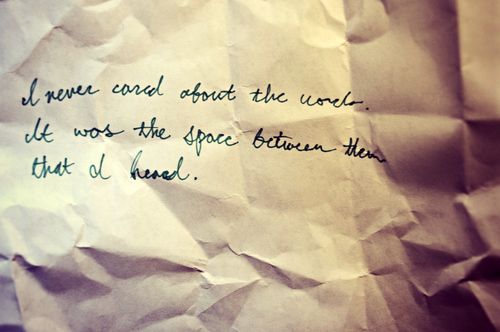 I never cared about the words.
It was the space between them
that I heard.